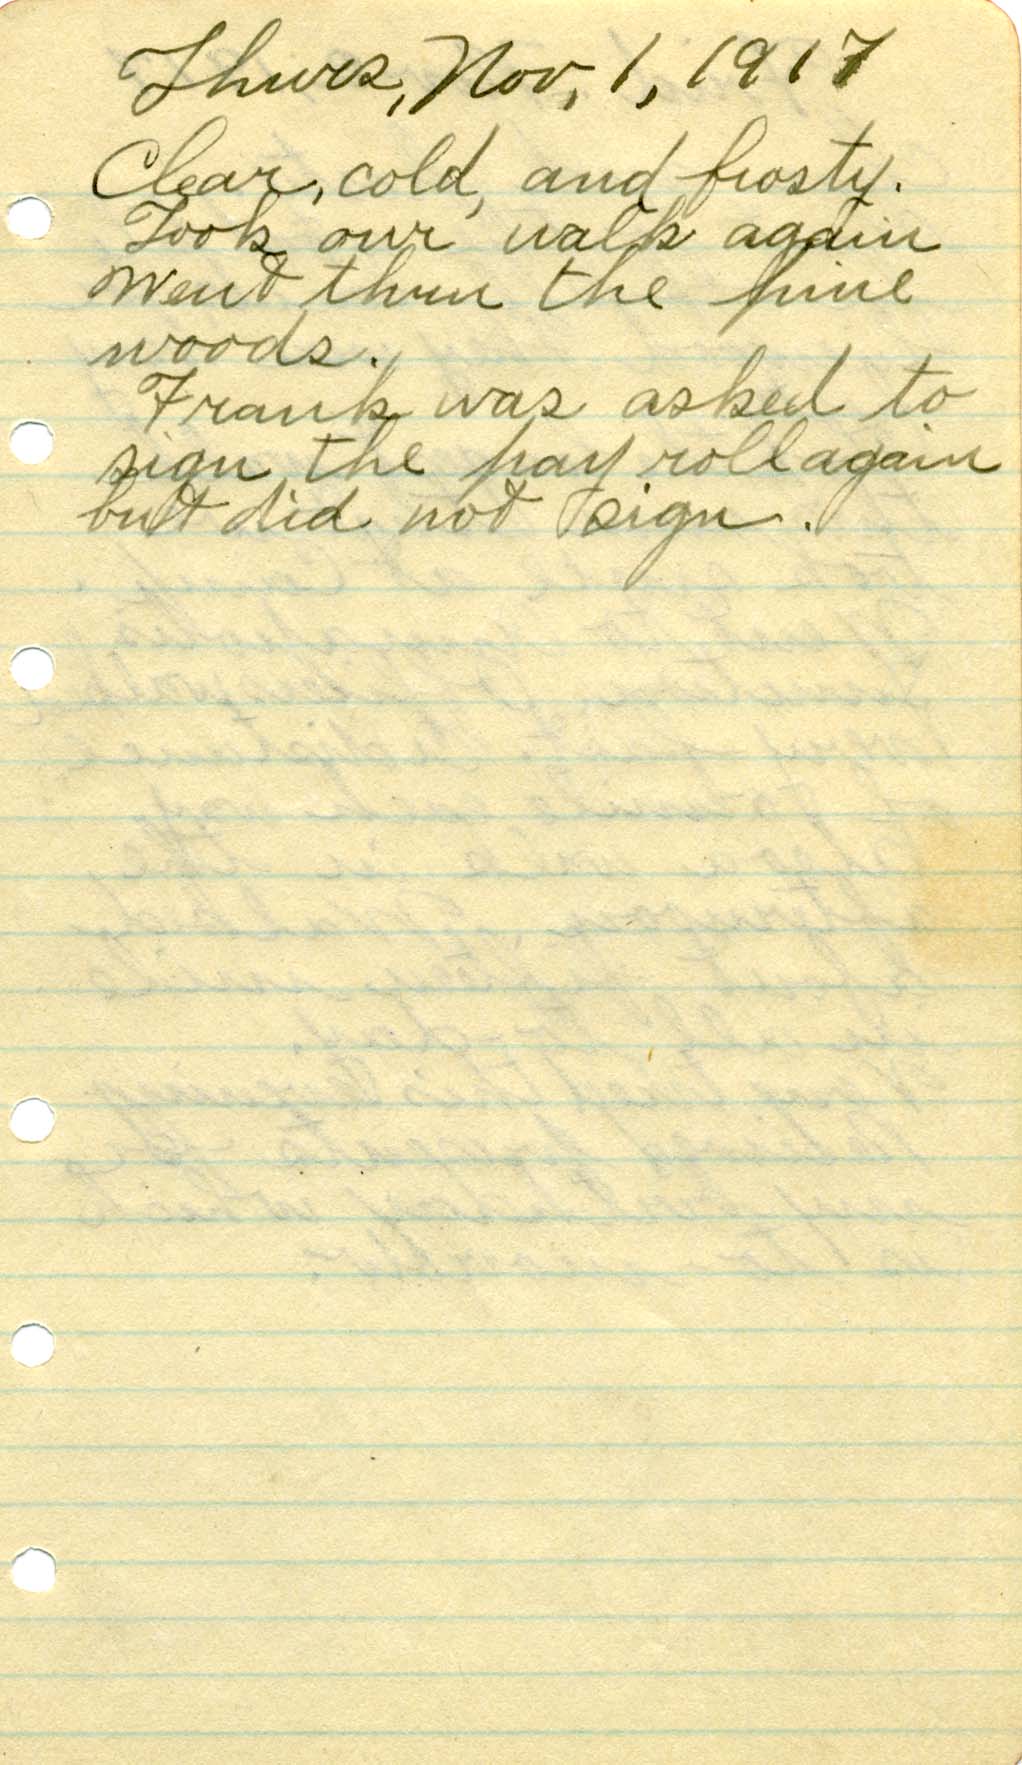 Thurs, Nov, 1, 1917
Clear, cold, and frosty.
Took our walk again
Went thru the pine
woods.
Frank was asked to
sign the pay roll again
but did not sign.